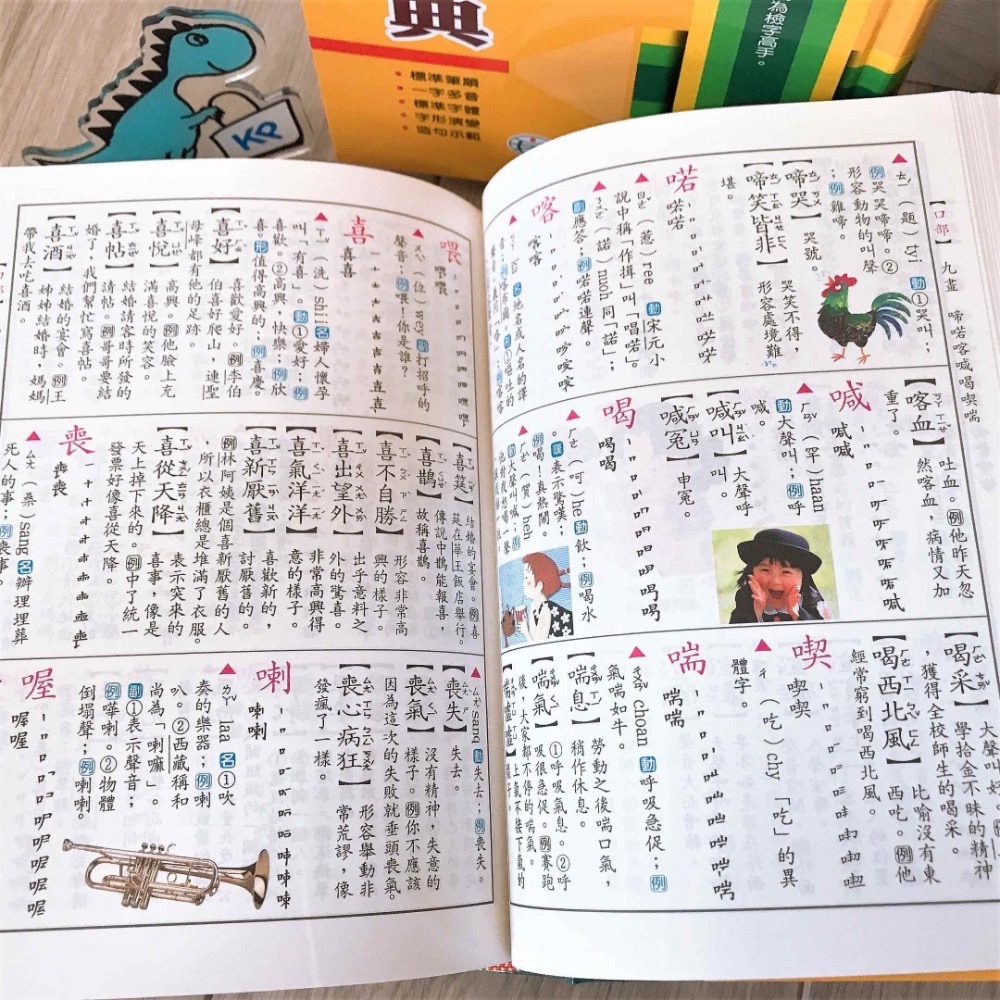 典
•標準筆順
•一字多音
•標準字體
•字形演變
•造句示範
為檢字高手。
KP
口部
九畫
啼喏喀喊喝喫喘
ㄊㄧˊ(題)tyi 動①哭叫;
例哭哭啼啼。②
形容動物的叫聲
;例雞啼。
【啼哭】哭號。
【啼笑皆非】哭笑不得,
形容處境難
堪。
喏
喏喏
ㄖㄜˇ(惹)ree 動宋元小
說中稱「作揖」叫「唱喏」。
ㄋㄨㄛˋ(諾)noh 同「諾」;
動應答;例喏喏連聲。
喀
喀喀
【喀血】吐血。例他昨天忽
然喀血,病情又加
重了。
喊
喊喊
ㄏㄢˇ(罕)haan
動大聲叫;例呼
喊。
【喊叫】大聲呼
叫。
【喊冤】申冤。
喝
喝喝
ㄏㄜ(呵)he 動飲;例喝水
。嘆表示驚嘆;
例喝!真熱鬧。
ㄏㄜˋ(賀)heh
動大聲喊叫;
【喝采】大聲叫好。
學拾金不昧的精神
,獲得全校師生的喝采。
【喝西北風】比喻沒有東
西吃。例他
經常窮到喝西北風。
喫
喫喫
ㄔ(吃)chy 「吃」的異
體字。
喘
喘喘
ㄔㄨㄢˇ choan 動呼吸急促;例
氣喘如牛。
【喘息】勞動之後喘口氣,
稍作休息。
【喘氣】①呼吸氣息。②呼
吸很急促。例賽跑
後,大家都不停的喘氣。
喂
喂喂
ㄨㄟˋ(位)wey 副打招呼的
聲音;例喂!你是誰?
喜
喜喜
ㄒㄧˇ(洗)shii 名婦人懷孕
叫「有喜」。動①愛好;例
喜歡。②高興,快樂;例欣
喜。形值得高興的;例喜慶。
【喜好】喜歡愛好。例李伯
伯喜好爬山,連聖
母峰都有他的足跡。
【喜悅】高興。例他臉上充
滿喜悅的笑容。
【喜帖】結婚請客時所發的
請帖。例哥哥要結
婚了,我們幫忙寫喜帖。
【喜酒】結婚的宴會。例王
姊姊結婚時,媽媽
帶我去吃喜酒。
【喜筵】結婚的宴會。例喜
筵在華王飯店舉行。
【喜鵲】傳說中鵲能報喜,
故稱喜鵲。
【喜不自勝】形容非常高
興的樣子。
【喜出望外】出乎意料之
外的驚喜。
【喜氣洋洋】非常高興得
意的樣子。
【喜新厭舊】喜歡新的,
討厭舊的。
例林阿姨是個喜新厭舊的人
,所以衣櫃總是堆滿了衣服。
【喜從天降】表示突來的
喜事,像是
天上掉下來的。例中了統一
發票好像喜從天降。
喪
喪喪
ㄙㄤ(桑)sang 名辦理埋葬
死人的事;例喪事。
ㄙㄤˋ sanq 動失去;例喪失。
【喪失】失去。
【喪氣】沒有精神,失意的
樣子。例你不應該
因為這次的失敗就垂頭喪氣。
【喪心病狂】形容舉動非
常荒謬,像
發瘋了一樣。
喇
喇喇
ㄌㄚˇ laa 名①吹
奏的樂器;例喇
叭。②西藏稱和
尚為「喇嘛」。
副①表示聲音;
例嘩喇。②物體
倒塌聲;例喇喇。
喔
喔喔